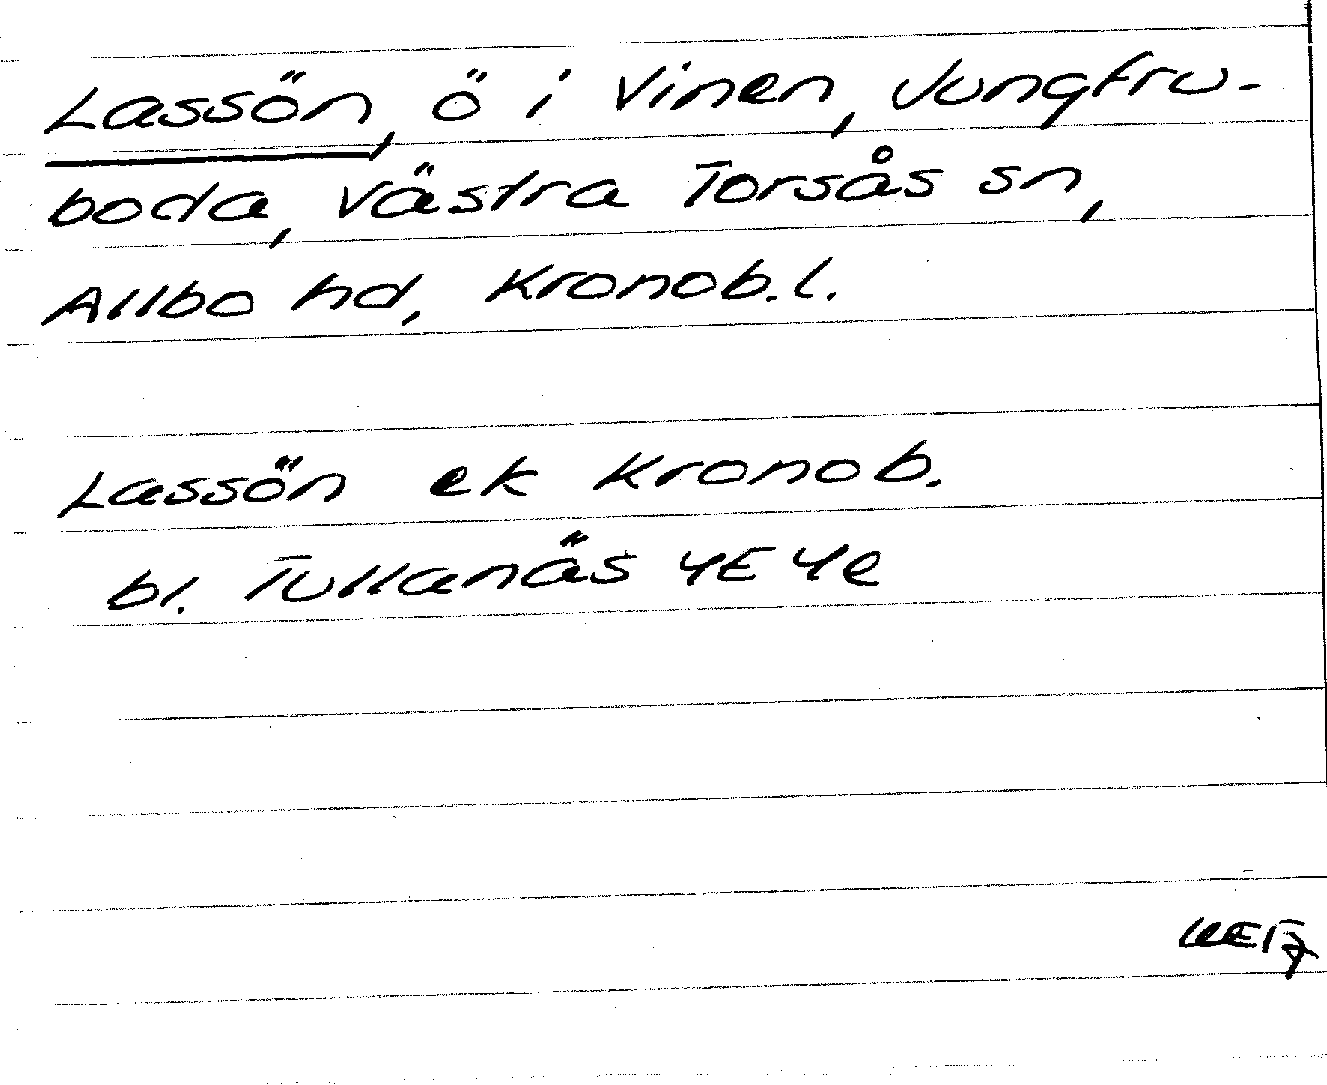 Lassön, ö i Vinen, Jungfru-
boda, Västra Torsås sn,
Allbo hd, Kronob.l.
Lassön ek Kronob.
bl. Tullanäs 4E 4e